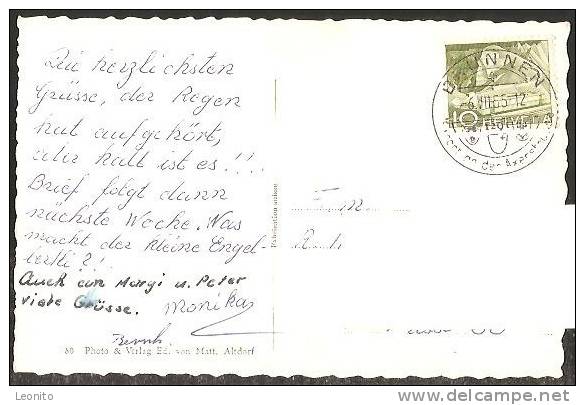 Die herzlichsten
Grüsse, der Regen
hat aufgehört,
aber kalt ist es!!!.
Brief folgt dann
nächste Woche. Was
macht der kleine Engel-
?!
Auch an Margi u. Peter
viele Grüsse. Monika
Bernh.
80 Photo & Verlag Ed. von Matt, Altdorf
Fabrication suisse
BRUNNEN
6.VII.65-12
HELVETIA
10
an der Axenstr.
Leonito
delcampe.net